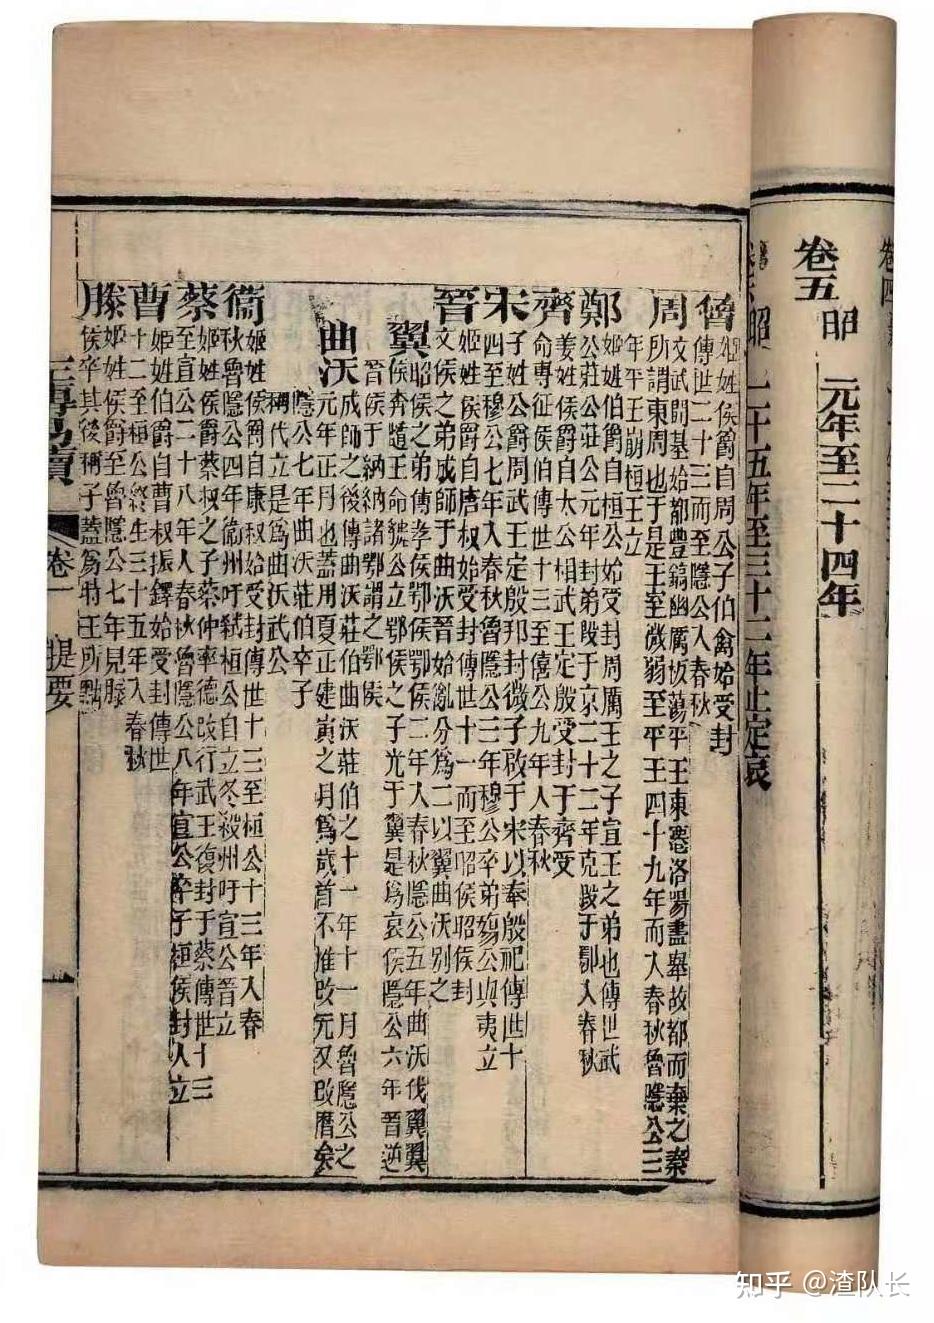 卷五 昭 元年至二十四年
昭 二十五年至三十二年止定哀
魯 姬姓侯爵自周公子伯禽始受封
傳世二十三而至隱公入春秋
周 文武開基始都豐鎬幽厲板蕩平王東遷洛陽盡舉故都而棄之秦
所謂東周也于是王室微弱至平王四十九年而入春秋魯隱公三
年平王崩桓王立
鄭 姬姓伯爵自桓公始受封周厲王之子宣王之弟也傳世武
公莊公莊公元年封弟段于京二十二年克段于鄢入春秋
齊 姜姓侯爵自太公相武王定殷受封于齊受
命專征侯伯傳世十三至僖公九年入春秋
宋 子姓公爵周武王定殷邦封微子啟于宋以奉殷祀傳世十
四至穆公七年入春秋魯隱公三年穆公卒弟殤公與夷立
晉 姬姓侯爵自唐叔始受封傳世十一而至昭侯昭侯封
文侯之弟成師于曲沃晉始亂分為二以翼曲沃別之
翼 昭侯之弟傳孝侯鄂侯鄂侯二年入春秋隱公五年曲沃伐翼翼
侯奔隨王命虢公立鄂侯之子光于翼是為哀侯隱公六年晉逆
晉侯于納納諸鄂謂之鄂侯
曲沃 成師之後傳曲沃莊伯曲沃莊伯之十一年十一月魯隱公之
元年正月也蓋用夏正建寅之月為歲首不惟改元又改曆矣
隱公七年曲沃莊伯卒子
稱代立是為曲沃武公
衛 姬姓侯爵自康叔始受封傳世十三至桓公十三年入春
秋魯隱公四年衛州吁弒桓公自立冬殺州吁宣公晉立
蔡 姬姓侯爵蔡叔之子蔡仲率德改行武王復封于蔡傳世十三
至宣公二十八年入春秋魯隱公八年宣公卒子桓侯封人立
曹 姬姓伯爵自曹叔振鐸始受封傳世
十二至桓公終生三十五年入春秋
滕 姬姓侯爵至魯隱公七年見滕
侯卒其後稱子蓋為時王所黜
卷一 提要
知乎 @渣队长